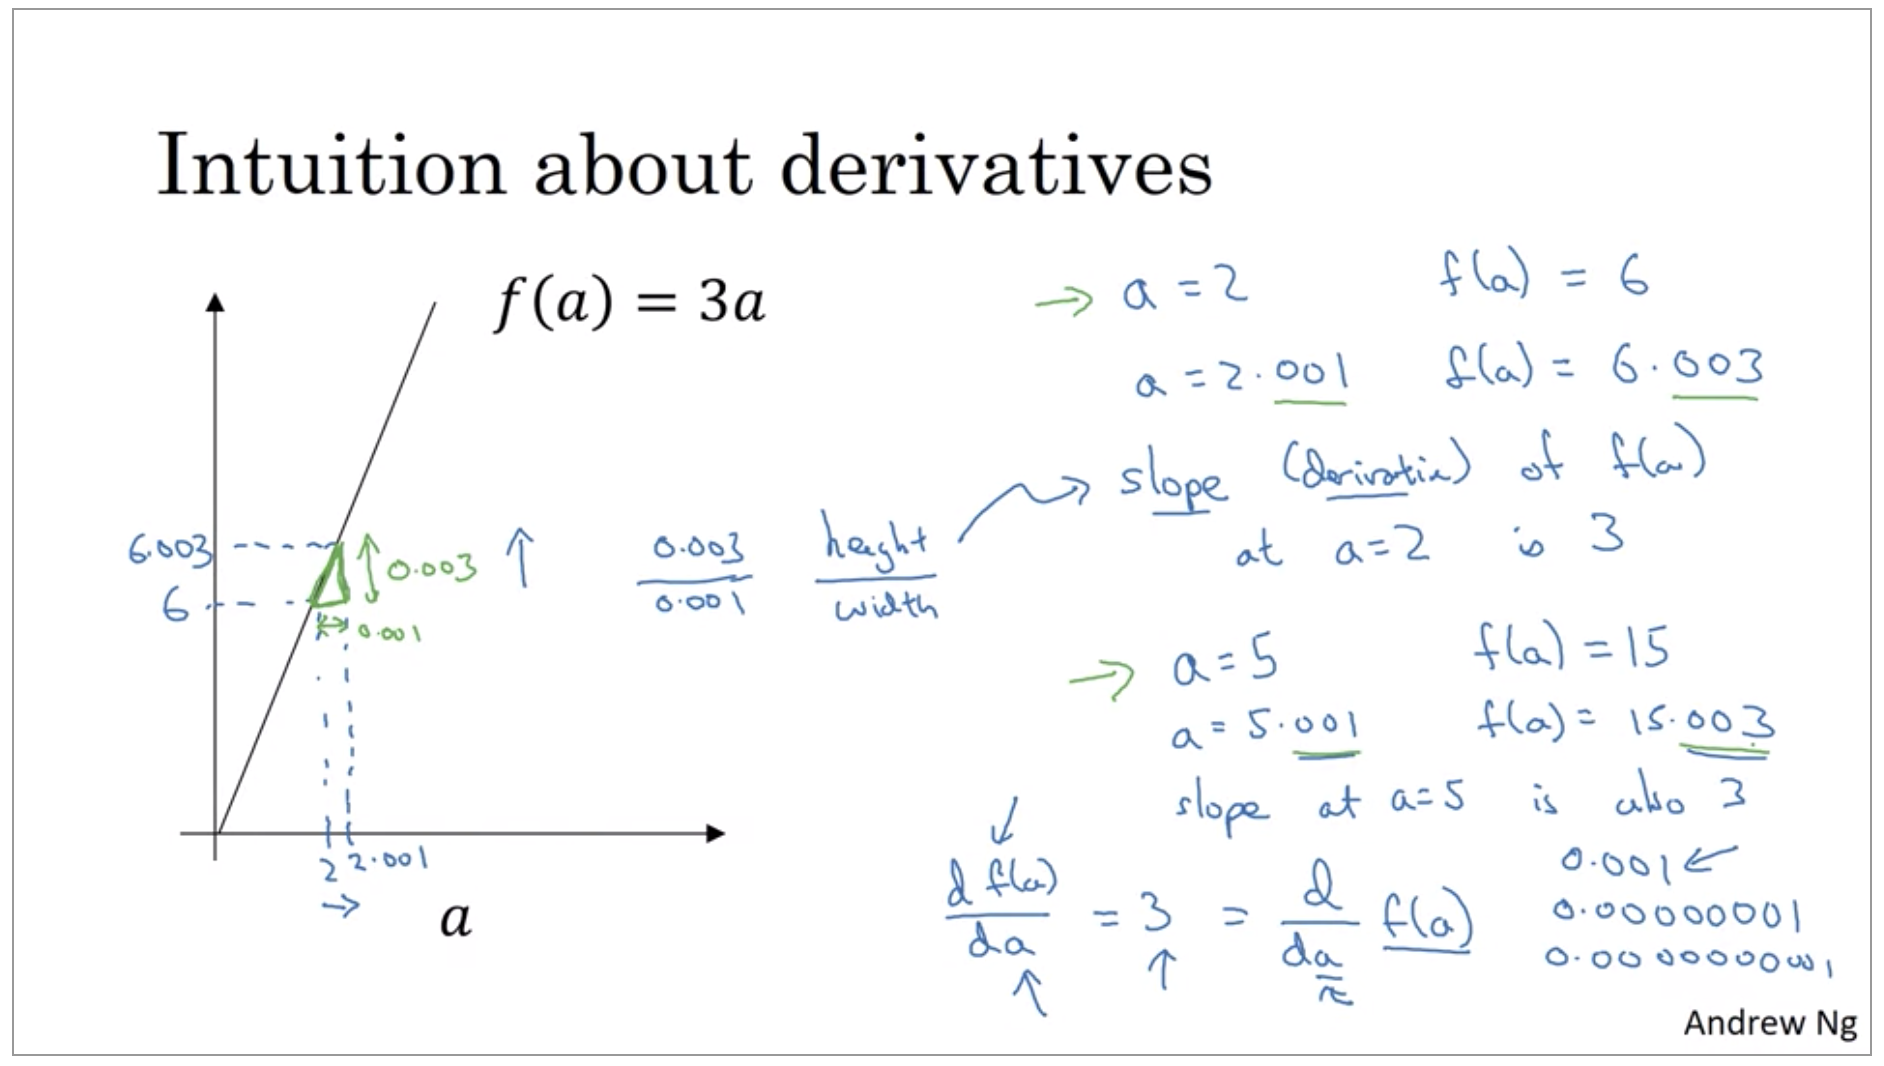 Intuition about derivatives
f(a) = 3a
6.003
6
0.003
0.001
2 2.001
a
0.003 / 0.001
height / width
a = 2 f(a) = 6
a = 2.001 f(a) = 6.003
slope (derivative) of f(a)
at a=2 is 3
a = 5 f(a) = 15
a = 5.001 f(a) = 15.003
slope at a=5 is also 3
d f(a) / da = 3 = d / da f(a)
0.001
0.00000001
0.0000000001
Andrew Ng